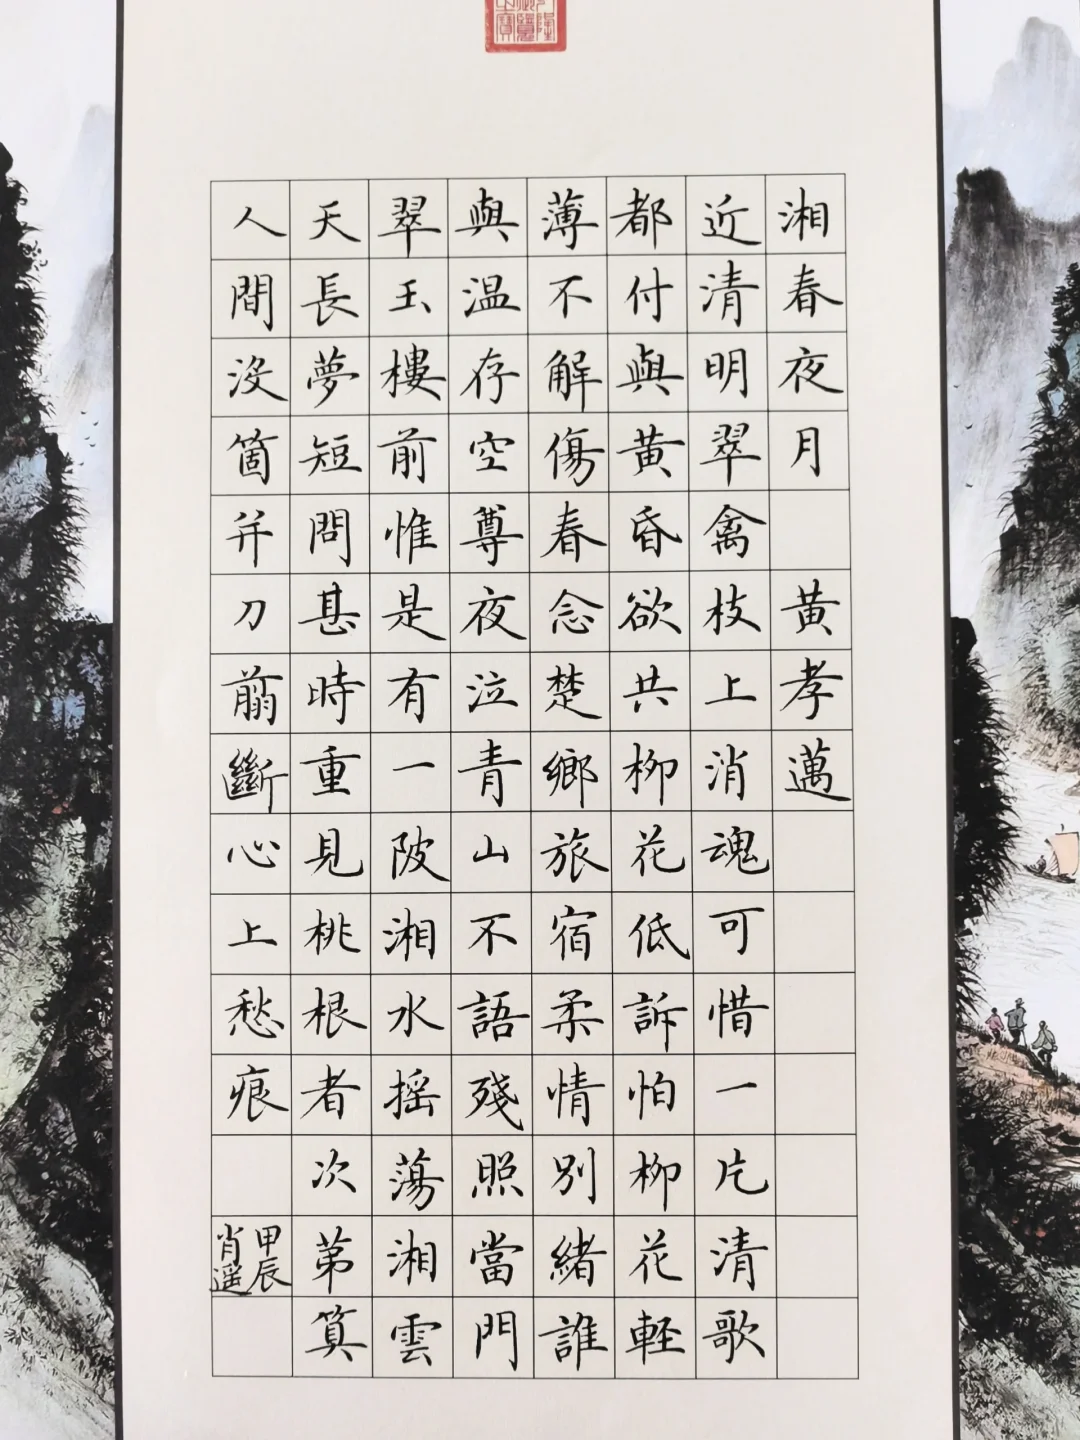 湘春夜月 黄孝邁
近清明翠禽枝上消魂可惜一片清歌
都付與黄昏欲共柳花低訴怕柳花軽
薄不解傷春念楚鄉旅宿柔情別緒誰
與温存空尊夜泣青山不語殘照當門
翠玉樓前惟是有一陂湘水摇蕩湘雲
天長夢短問甚時重見桃根者次第算
人間没箇并刀翦斷心上愁痕
甲辰
肖遥